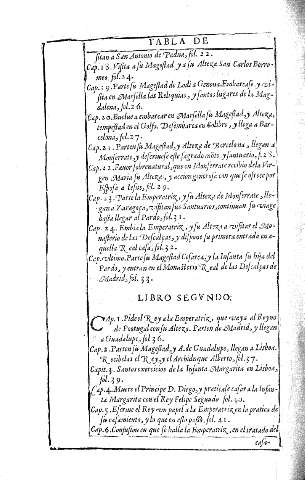 TABLA DE
sitan a San Antonio de Padua, fol. 22.
Cap. 18. Visita a su Magestad, y a su Alteza San Carlos Borro-
meo. fol. 24.
Cap. 19. Parte su Magestad de Lodi a Genoua. Embarcase y vi-
sita en Marsella las Reliquias, y santos lugares de la Mag-
dalena, fol. 26.
Cap. 20. Buelue a embarcar en Marsella su Magestad, y Alteza,
tempestad en el Golfo. Desembarca en Colibre, y llega a Bar-
celona. fol. 27.
Cap. 21. Parten su Magestad, y Alteza de Barcelona, llegan a
Monserrate, y descriuese este sagrado môte, y santuario, f. 28.
Cap. 22. Fauor sobrenatural, que en Monserrate recibio de la Vir-
gen Maria su Alteza, y accion generosa con que se ofrece por
Esposa a Iesus, fol. 29.
Cap. 23. Parte la Emperatriz, y su Alteza de Monserrate, lle-
gan a Zaragoça, visitan sus Santuarios, continuan su viage
hasta llegar al Pardo, fol. 31.
Cap. 24. Embia la Emperatriz, y su Alteza a visitar el Mo-
nasterio de las Descalças, y dispone su primera entrada en aque-
lla Real casa, fol. 32.
Cap. vltimo. Parte su Magestad Cesarea, y la Infanta su hija del
Pardo, y entran en el Monasterio Real de las Descalças de
Madrid, fol. 33.
LIBRO SEGVNDO.
CAp. 1. Pide el Rey a la Emperatriz, que vaya al Reyno
de Portugal con su Alteza. Parten de Madrid, y llegan
a Guadalupe, fol. 36.
Cap. 2. Parten su Magestad, y A. de Guadalupe, llegan a Lisboa.
Recibelas el Rey, y el Archiduque Alberto, fol. 37.
Capit. 3. Santos exercicios de la Infanta Margarita en Lisboa.
fol. 39.
Cap. 4. Muere el Principe D. Diego, y praticase casar a la Infan-
ta Margarita con el Rey Felipe Segundo fol. 40.
Cap. 5. Escriue el Rey vn papel a la Emperatriz en la pratica de
su casamiento, y lo que en esto passò. fol. 41.
Cap. 6. Confusion en que se halla la Emperatriz, en el tratado del
casa-